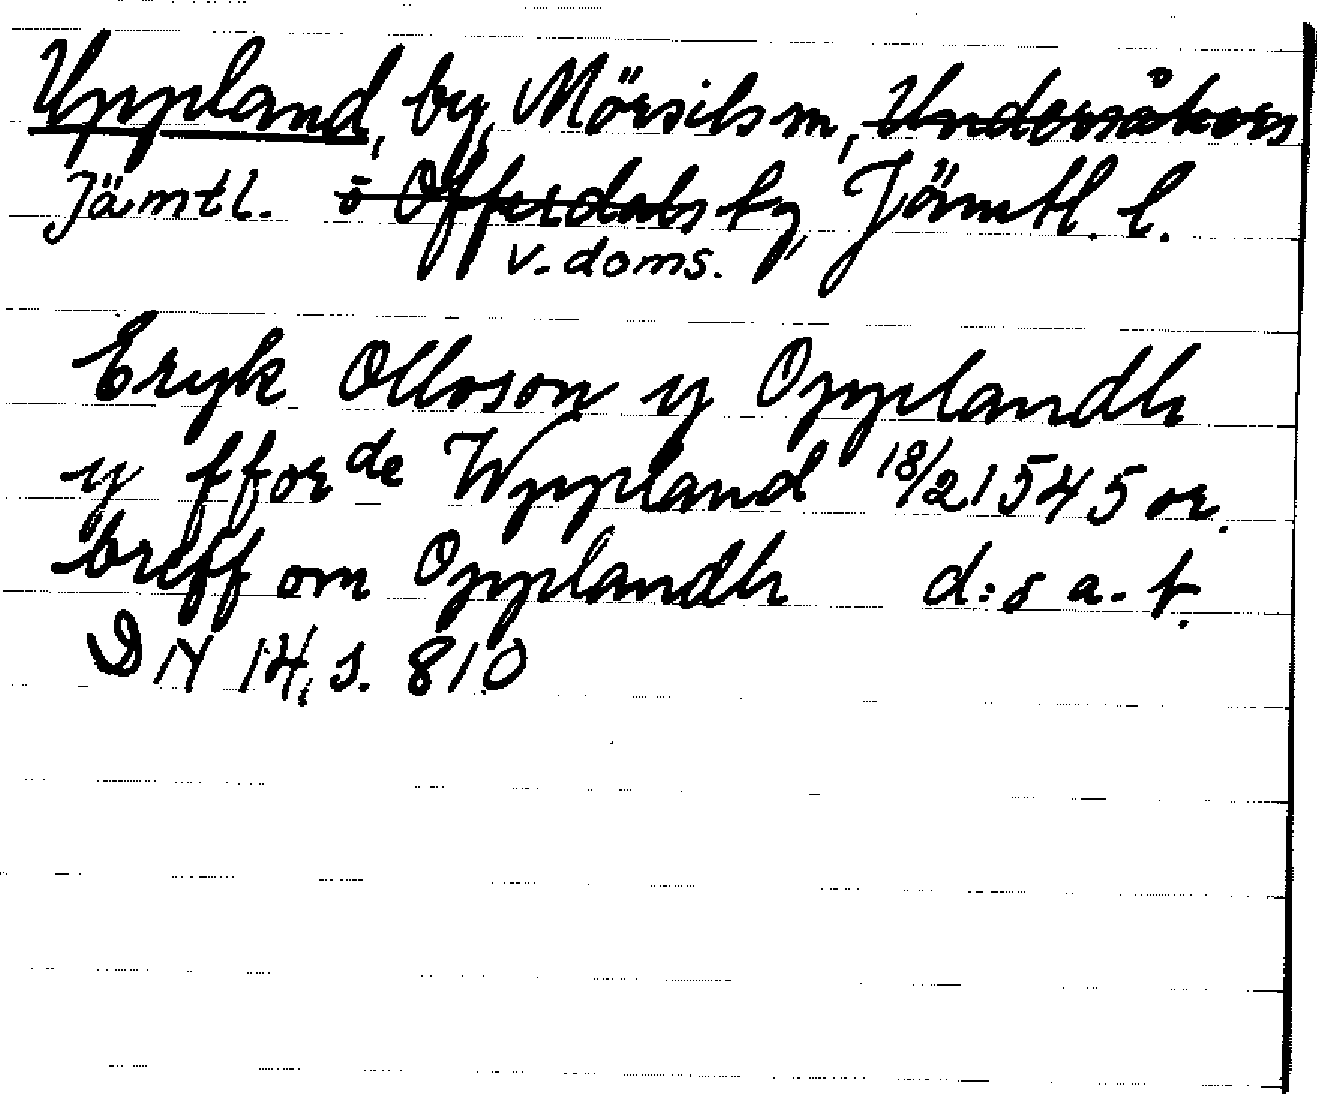 Uppland, by, Mörsils sn, Undersåkers
Jämtl. o Offerdals tg, Jämtl. l.
v. doms.
Eryk Olloson y Opplandh
y fforde Wppland 18/2 1545 or.
breff om Opplandh d:s a. f.
DN 14, s. 810